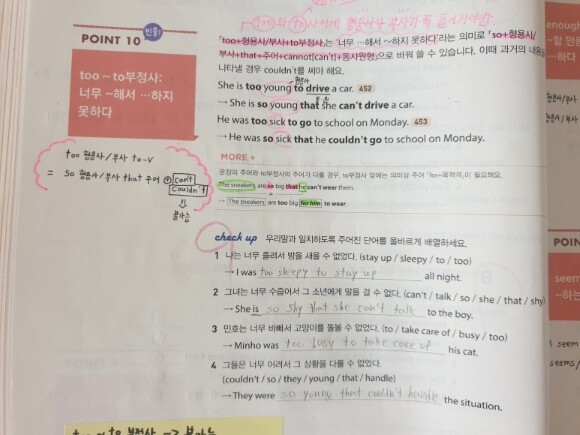 too와 to사이에 형용사나 부사가 꼭 들어가야함.
POINT 10
빈출!
too ~ to부정사:
너무 ~해서 …하지
못하다
「too+형용사/부사+to부정사」는 '너무 …해서 ~하지 못하다'라는 의미로 「so+형용사/
부사+that+주어+cannot[can't]+동사원형」으로 바꿔 쓸 수 있습니다. 이때 과거의 내용을
나타낼 경우 couldn't를 써야 해요.
형용사
She is too young to drive a car. 452
→ She is so young that she can't drive a car.
He was too sick to go to school on Monday. 453
→ He was so sick that he couldn't go to school on Monday.
too 형용사/부사 to-v
= so 형용사/부사 that 주어 + can't
couldn't
불가능
MORE +
문장의 주어와 to부정사의 주어가 다를 경우, to부정사 앞에는 의미상 주어 「for+목적격」이 필요해요.
The sneakers are so big that he can't wear them.
→ The sneakers are too big for him to wear.
check up 우리말과 일치하도록 주어진 단어를 올바르게 배열하세요.
1 나는 너무 졸려서 밤을 새울 수 없었다. (stay up / sleepy / to / too)
→ I was too sleepy to stay up all night.
2 그녀는 너무 수줍어서 그 소년에게 말을 걸 수 없다. (can't / talk / so / she / that / shy)
→ She is so shy that she can't talk to the boy.
3 민호는 너무 바빠서 고양이를 돌볼 수 없었다. (to / take care of / busy / too)
→ Minho was too busy to take care of his cat.
4 그들은 너무 어려서 그 상황을 다룰 수 없었다.
(couldn't / so / they / young / that / handle)
→ They were so young that couldn't handle the situation.
too ~ to 부정사 → 불가능
enough
형용사
POINT
seem
~하는
I seem
seems/